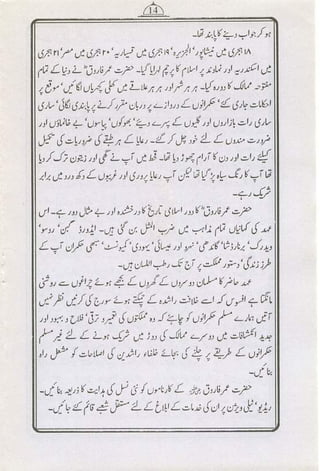 14
ہو کر جواب دینے کا پابند تھا۔
۱۸ ہجری میں نیشاپور' الجزیرہ' ۱۹ ہجری میں قسیاریہ' ۲۰ ہجری میں مصر' ۲۱ ہجری
میں اسکندریہ اور نہاوند پر اسلام کا پرچم لہرایا گیا۔ حضرت عمر فاروقؓ نے دنیا کے تمام
مفتوحہ ممالک کا دورہ کیا۔ ہر ہر شہر اور ہر ہر علاقے میں کھلی کچہریاں لگائیں' موقع پر
احکامات جاری کئے' حکمرانوں کے دروازے پر دربان مقرر کرنے پر پابندی لگائی' ساری
ساری رات بازاروں اور گلیوں کے پہرے دیئے' بھوکوں' پیاسوں' بے خانماؤں اور
ضرورت مندوں کے لئے خود چل کر گئے۔ رعایا کے ہر طبقے کی ضروریات کی تکمیل
کیلئے رات اور دن کا آرام چھوڑ دیا تھا۔ قحط میں آپ نے گھی اور زیتون ترک کر دیا
تھا آپ کا رنگ سیاہ پڑ گیا تھا لیکن آپ رعایا پروری اور غریبوں کے دکھ درد میں برابر
شریک رہے۔
حضرت عمر فاروقؓ کا دور اسلامی تاریخ کا درخشندہ اور بے مثال دور ہے۔ اس
عہد کی کہانیاں تمام مذاہب میں ضرب المثل بن گئی ہیں۔ ایڈورڈ گبن' روسو'
ویدرک' برنارڈشا' گاندھی' نہرو اور عیسائی' یہودی' کمیونسٹ' سبھی حکمران آپ کے
طرز زندگی' دستور مملکت پر آج تک رطب اللسان ہیں۔
عہد حاضر کا مسلمان دوسروں کے گھروں کے بجھے ہوئے چراغوں سے روشنی
مانگتا ہے افسوس کہ اسے خلافت راشدہ کے چمکتے ہوئے سورج کی کرنیں نظر نہیں
آتیں ہمارے مسلم حکمرانوں کو چاہئے کہ وہ مملکتوں کی تعمیر و ترقی' فلاح و بہبود اور
جدید انکشافات میں دوسرے ممالک کی دوڑ میں شریک ہونے کے لئے غیر مسلم
حکمرانوں کے طریقے پر چلنے کی بجائے خلفاء راشدین کی اصلاحات کو مشعل راہ
بنائیں۔
حضرت عمر فاروق کے کارناموں کو نئی نسل کی ہدایت کا ذریعہ بنائیں۔
ریڈیو' ٹیلی ویژن پر ان کی خدمات کے ابلاغ کے لئے مستقل شعبے قائم کئے جائیں۔